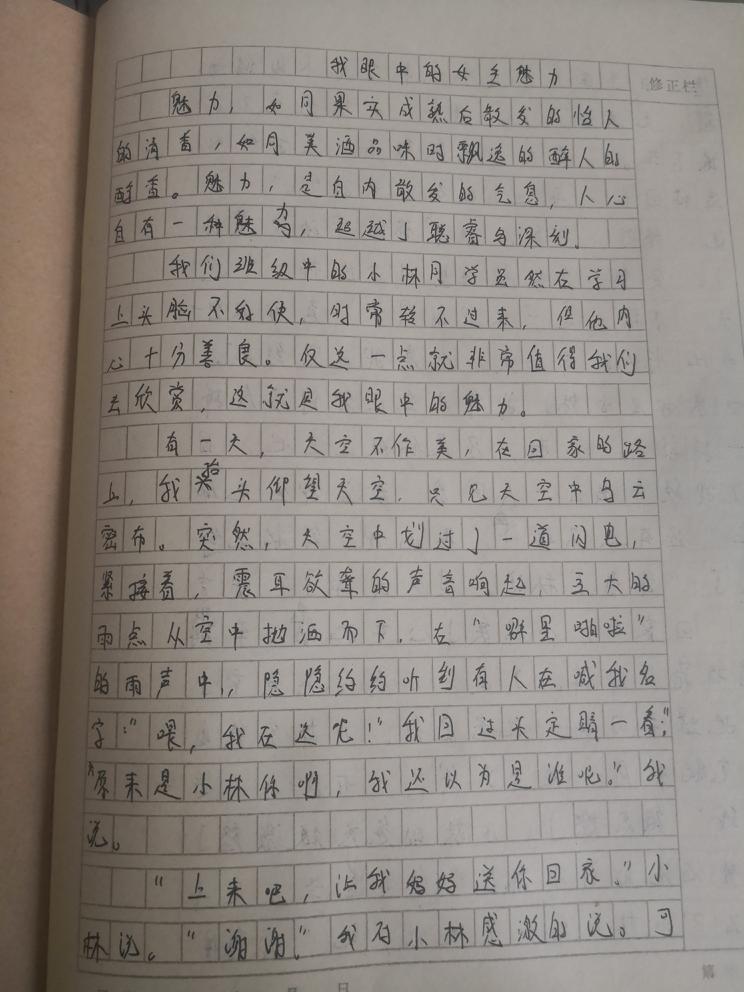 我眼中的女生魅力
修正栏
魅力，如同果实成熟后散发的怡人
的清香，如同美酒品味时飘逸的醉人的
醇香。魅力，是自内散发的气息，人心
自有一种魅力，超越了聪睿与深刻。
我们班级中的小林同学虽然在学习
上头脸不好使，时常转不过来，但他内
心十分善良。仅这一点就非常值得我们
去欣赏，这就是我眼中的魅力。
有一天，天空不作美，在回家的路
上，我抬头仰望天空，只见天空中乌云
密布。突然，天空中划过了一道闪电，
紧接着，震耳欲聋的声音响起，豆大的
雨点从空中抛洒而下，在“噼里啪啦”
的雨声中，隐隐约约听到有人在喊我名
字：“喂，我在这儿！”我回过头定睛一看：
“原来是小林你啊，我还以为是谁呢。”我
说。
“上来吧，让我妈妈送你回家。”小
林说。“谢谢。”我对小林感激的说。可
第
日